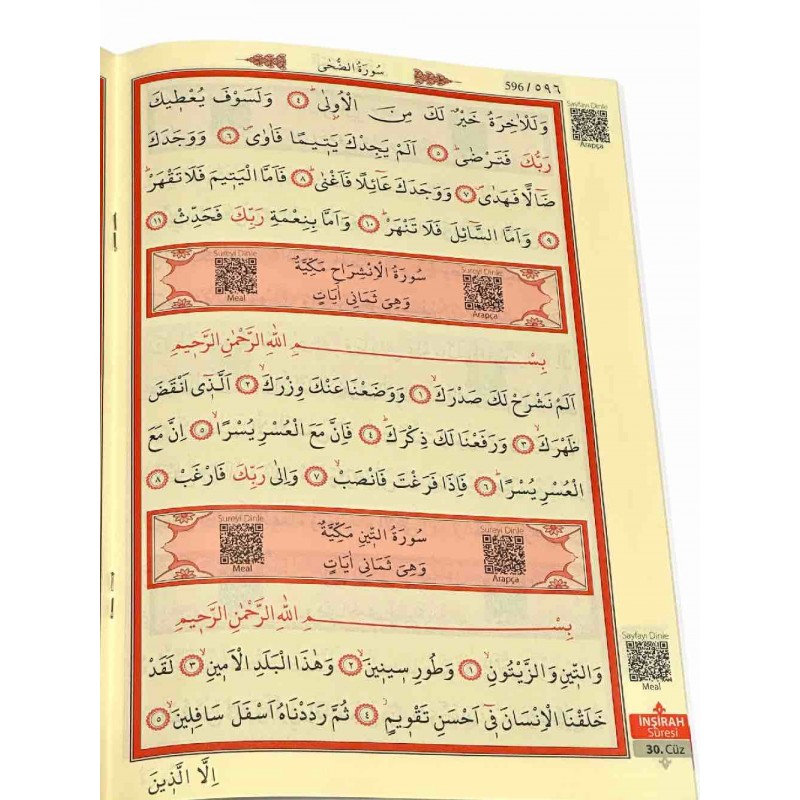 سُورَةُ الضُّحٰى
596/٥٩٦
Sayfayı Dinle
Arapça
وَلَلْاٰخِرَةُ خَيْرٌ لَكَ مِنَ الْاُو۫لٰىۜ ﴿٤﴾ وَلَسَوْفَ يُعْط۪يكَ
رَبُّكَ فَتَرْضٰىۜ ﴿٥﴾ اَلَمْ يَجِدْكَ يَت۪يمًا فَاٰوٰىۖ ﴿٦﴾ وَوَجَدَكَ
ضَٓالًّا فَهَدٰىۖ ﴿٧﴾ وَوَجَدَكَ عَٓائِلًا فَاَغْنٰىۜ ﴿٨﴾ فَاَمَّا الْيَت۪يمَ فَلَا تَقْهَرْۜ
﴿٩﴾ وَاَمَّا السَّٓائِلَ فَلَا تَنْهَرْۜ ﴿١٠﴾ وَاَمَّا بِنِعْمَةِ رَبِّكَ فَحَدِّثْ ﴿١١﴾
Sureyi Dinle
Meal
سُورَةُ الْاِنْشِرَاحِ مَكِّيَّةٌ
وَهِيَ ثَمَانِي اٰيَاتٍ
Sureyi Dinle
Arapça
بِسْمِ اللّٰهِ الرَّحْمٰنِ الرَّح۪يمِ
اَلَمْ نَشْرَحْ لَكَ صَدْرَكَۙ ﴿١﴾ وَوَضَعْنَا عَنْكَ وِزْرَكَۙ ﴿٢﴾ اَلَّذ۪ٓي اَنْقَضَ
ظَهْرَكَۙ ﴿٣﴾ وَرَفَعْنَا لَكَ ذِكْرَكَۜ ﴿٤﴾ فَاِنَّ مَعَ الْعُسْرِ يُسْرًاۙ ﴿٥﴾ اِنَّ مَعَ
الْعُسْرِ يُسْرًاۜ ﴿٦﴾ فَاِذَا فَرَغْتَ فَانْصَبْۙ ﴿٧﴾ وَاِلٰى رَبِّكَ فَارْغَبْ ﴿٨﴾
Sureyi Dinle
Meal
سُورَةُ التّ۪ينِ مَكِّيَّةٌ
وَهِيَ ثَمَانِي اٰيَاتٍ
Sureyi Dinle
Arapça
بِسْمِ اللّٰهِ الرَّحْمٰنِ الرَّح۪يمِ
وَالتّ۪ينِ وَالزَّيْتُونِۙ ﴿١﴾ وَطُورِ س۪ين۪ينَۙ ﴿٢﴾ وَهٰذَا الْبَلَدِ الْاَم۪ينِۙ ﴿٣﴾ لَقَدْ
خَلَقْنَا الْاِنْسَانَ ف۪ٓي اَحْسَنِ تَقْو۪يمٍۘ ﴿٤﴾ ثُمَّ رَدَدْنَاهُ اَسْفَلَ سَافِل۪ينَۙ ﴿٥﴾
اِلَّا الَّذ۪ينَ
Sayfayı Dinle
Meal
İNŞİRAH
Sûresi
30. Cüz